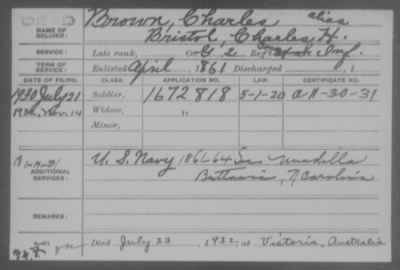 DEAD
Brown, Charles alias
NAME OF SOLDIER: Bristol, Charles H.
SERVICE: Late rank, Co G, 2 Reg Inf.
TERM OF SERVICE: Enlisted April , 1861 Discharged , 1
DATE OF FILING. CLASS. APPLICATION NO. LAW. CERTIFICATE NO.
1930 July 21 Soldier, 1672818 5-1-20
Widow, "
Minor,
ADDITIONAL SERVICES: U. S. Navy 1861-64 Unadilla
N Carolina
REMARKS:
Died July 23 , 1932 at Victoria, Australia